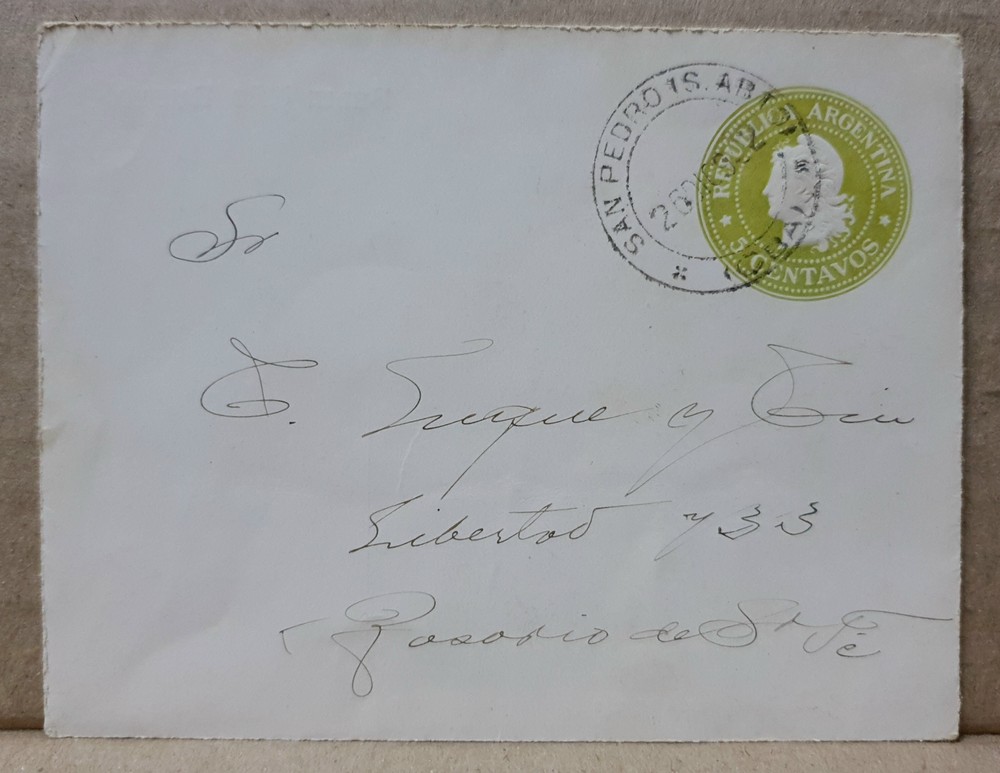 SAN PEDRO (S. AR
REPUBLICA ARGENTINA
5 CENTAVOS
Sr
Luque y
Libertad 733
Rosario de Sta Fé